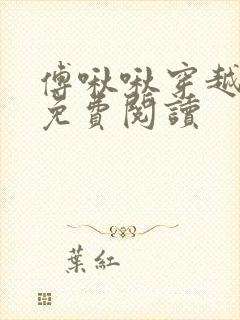 傅啾啾穿越
免費閱讀
葉紅